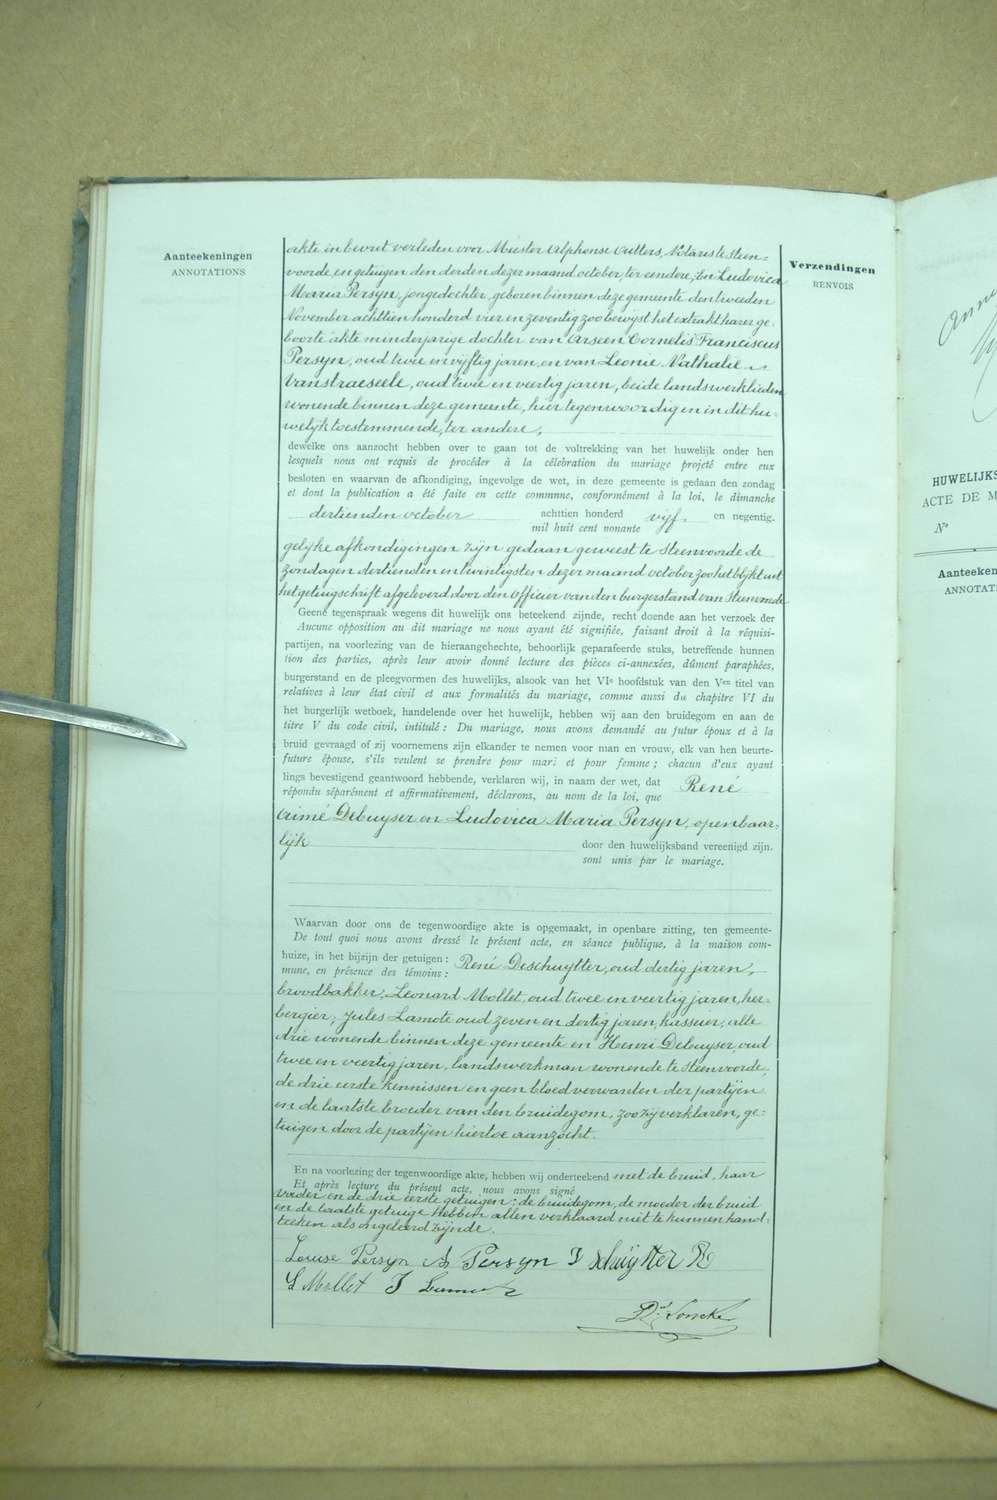 Aanteekeningen
ANNOTATIONS
akte in brevet verleden voor Miester Alphonse Outters, Notaris te Steen-
voorde, en getuigen den derden dezer maand october, ter eendere; En Ludovica
Maria Persyn, jongedochter, geboren binnen deze gemeente den tweeden
November achttien honderd vier en zeventig zoo bewijst het extrakt harer ge-
boorte akte minderjarige dochter van Arseen Cornelis Franciscus
Persyn, oud twee en vijftig jaren, en van Leonie Nathalie
Vanstraeseele, oud twee en veertig jaren, beide landswerklieden
wonende binnen deze gemeente, hier tegenwoordig en in dit hu-
welijk toestemmende, ter andere,
dewelke ons aanzocht hebben over te gaan tot de voltrekking van het huwelijk onder hen
lesquels nous ont requis de procéder à la célébration du mariage projeté entre eux
besloten en waarvan de afkondiging, ingevolge de wet, in deze gemeente is gedaan den zondag
et dont la publication a été faite en cette commune, conformément à la loi, le dimanche
dertienden october achttien honderd vijf en negentig.
mil huit cent nonante
gelijke afkondigingen zijn gedaan geweest te Steenvoorde de
zondagen dertienden en twintigsten dezer maand october zoo het blijkt uit
het getuigschrift afgeleverd door den Officier van den burgerstand van Steenvoorde
Geene tegenspraak wegens dit huwelijk ons beteekend zijnde, recht doende aan het verzoek der
Aucune opposition au dit mariage ne nous ayant été signifiée, faisant droit à la réquisi-
partijen, na voorlezing van de hieraangehechte, behoorlijk geparafeerde stuks, betreffende hunnen
tion des parties, après leur avoir donné lecture des pièces ci-annexées, dûment paraphées,
burgerstand en de pleegvormen des huwelijks, alsook van het VIe hoofdstuk van den Ven titel van
relatives à leur état civil et aux formalités du mariage, comme aussi du chapitre VI du
het burgerlijk wetboek, handelende over het huwelijk, hebben wij aan den bruidegom en aan de
titre V du code civil, intitulé : Du mariage, nous avons demandé au futur époux et à la
bruid gevraagd of zij voornemens zijn elkander te nemen voor man en vrouw, elk van hen beurte-
future épouse, s'ils veulent se prendre pour mari et pour femme ; chacun d'eux ayant
lings bevestigend geantwoord hebbende, verklaren wij, in naam der wet, dat René
répondu séparément et affirmativement, déclarons, au nom de la loi, que
Aimé Debuyser en Ludovica Maria Persyn, openbaar-
lijk door den huwelijksband vereenigd zijn.
sont unis par le mariage.
Waarvan door ons de tegenwoordige akte is opgemaakt, in openbare zitting, ten gemeente-
De tout quoi nous avons dressé le présent acte, en séance publique, à la maison com-
huize, in het bijzijn der getuigen : René Deschuytter, oud dertig jaren,
mune, en présence des témoins :
broodbakker; Leonard Mollet, oud twee en veertig jaren, her-
bergier; Jules Lamote oud zeven en dertig jaren, kasseier, alle
drie wonende binnen deze gemeente en Henri Debuyser, oud
twee en veertig jaren, landswerkman wonende te Steenvoorde;
de drie eerste kennissen en geen bloedverwanden der partijen
en de laatste broeder van den bruidegom, zoo zij verklaren, ge-
tuigen door de partijen hiertoe aanzocht.
En na voorlezing der tegenwoordige akte, hebben wij onderteekend met de bruid, haar
Et après lecture du présent acte, nous avons signé
vader en de drie eerste getuigen; de bruidegom, de moeder der bruid
en de laatste getuige hebben allen verklaard niet te kunnen hand-
teeken als ongeleerd zijnde.
Louise Persyn A Persyn
L Mollet J
Loncke
Verzendingen
RENVOIS
HUWELIJKS
ACTE DE M
No
Aanteeken
ANNOTAT